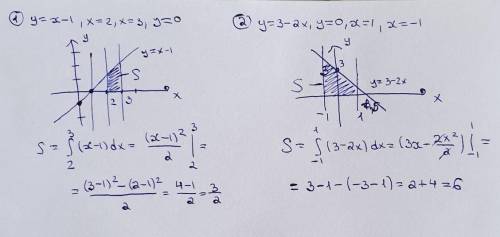 ① y=x-1, x=2, x=3, y=0
y
y=x-1
S
2 3 x
S = ∫₂³ (x-1)dx = (x-1)²/2 |₂³ =
= ((3-1)²-(2-1)²)/2 = (4-1)/2 = 3/2
② y=3-2x, y=0, x=1, x=-1
y
3
S
y=3-2x
-1 1 x
S = ∫₋₁¹ (3-2x)dx = (3x - 2x²/2) |₋₁¹ =
= 3-1-(-3-1)=2+4=6